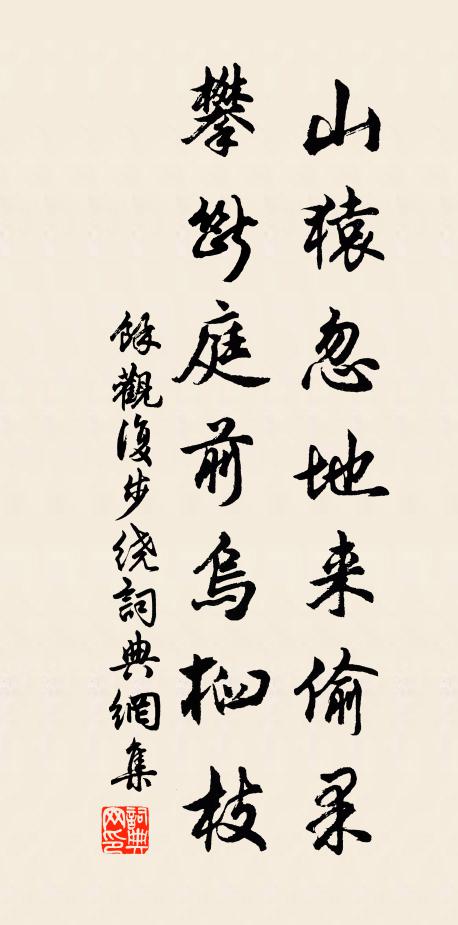 山猿忽地来偷果
攀断庭前乌桕枝
馀觀復步绕詞典網集
詞典网印